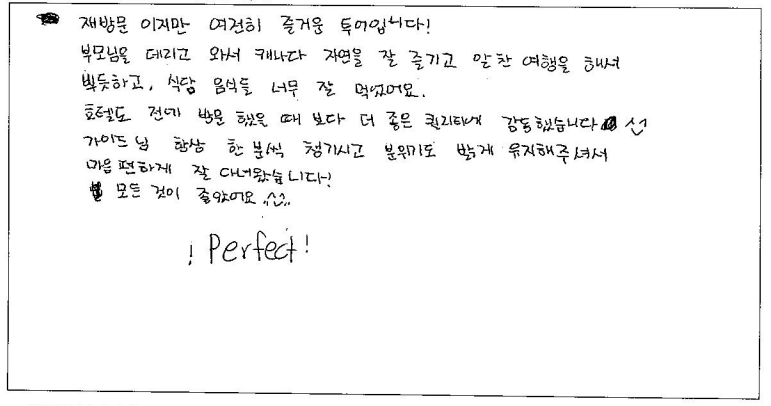 재방문 이지만 여전히 즐거운 투어입니다!
부모님을 데리고 와서 캐나다 자연을 잘 즐기고 알찬 여행을 해서
뿌듯하고, 식당 음식들 너무 잘 먹었어요.
호텔도 전에 방문 했을 때 보다 더 좋은 퀄리티에 감동했습니다 ^^
가이드 님 항상 한 분씩 챙기시고 분위기도 밝게 유지해주셔서
마음 편하게 잘 다녀왔습니다!
모든 것이 좋았어요 ^^
! Perfect !